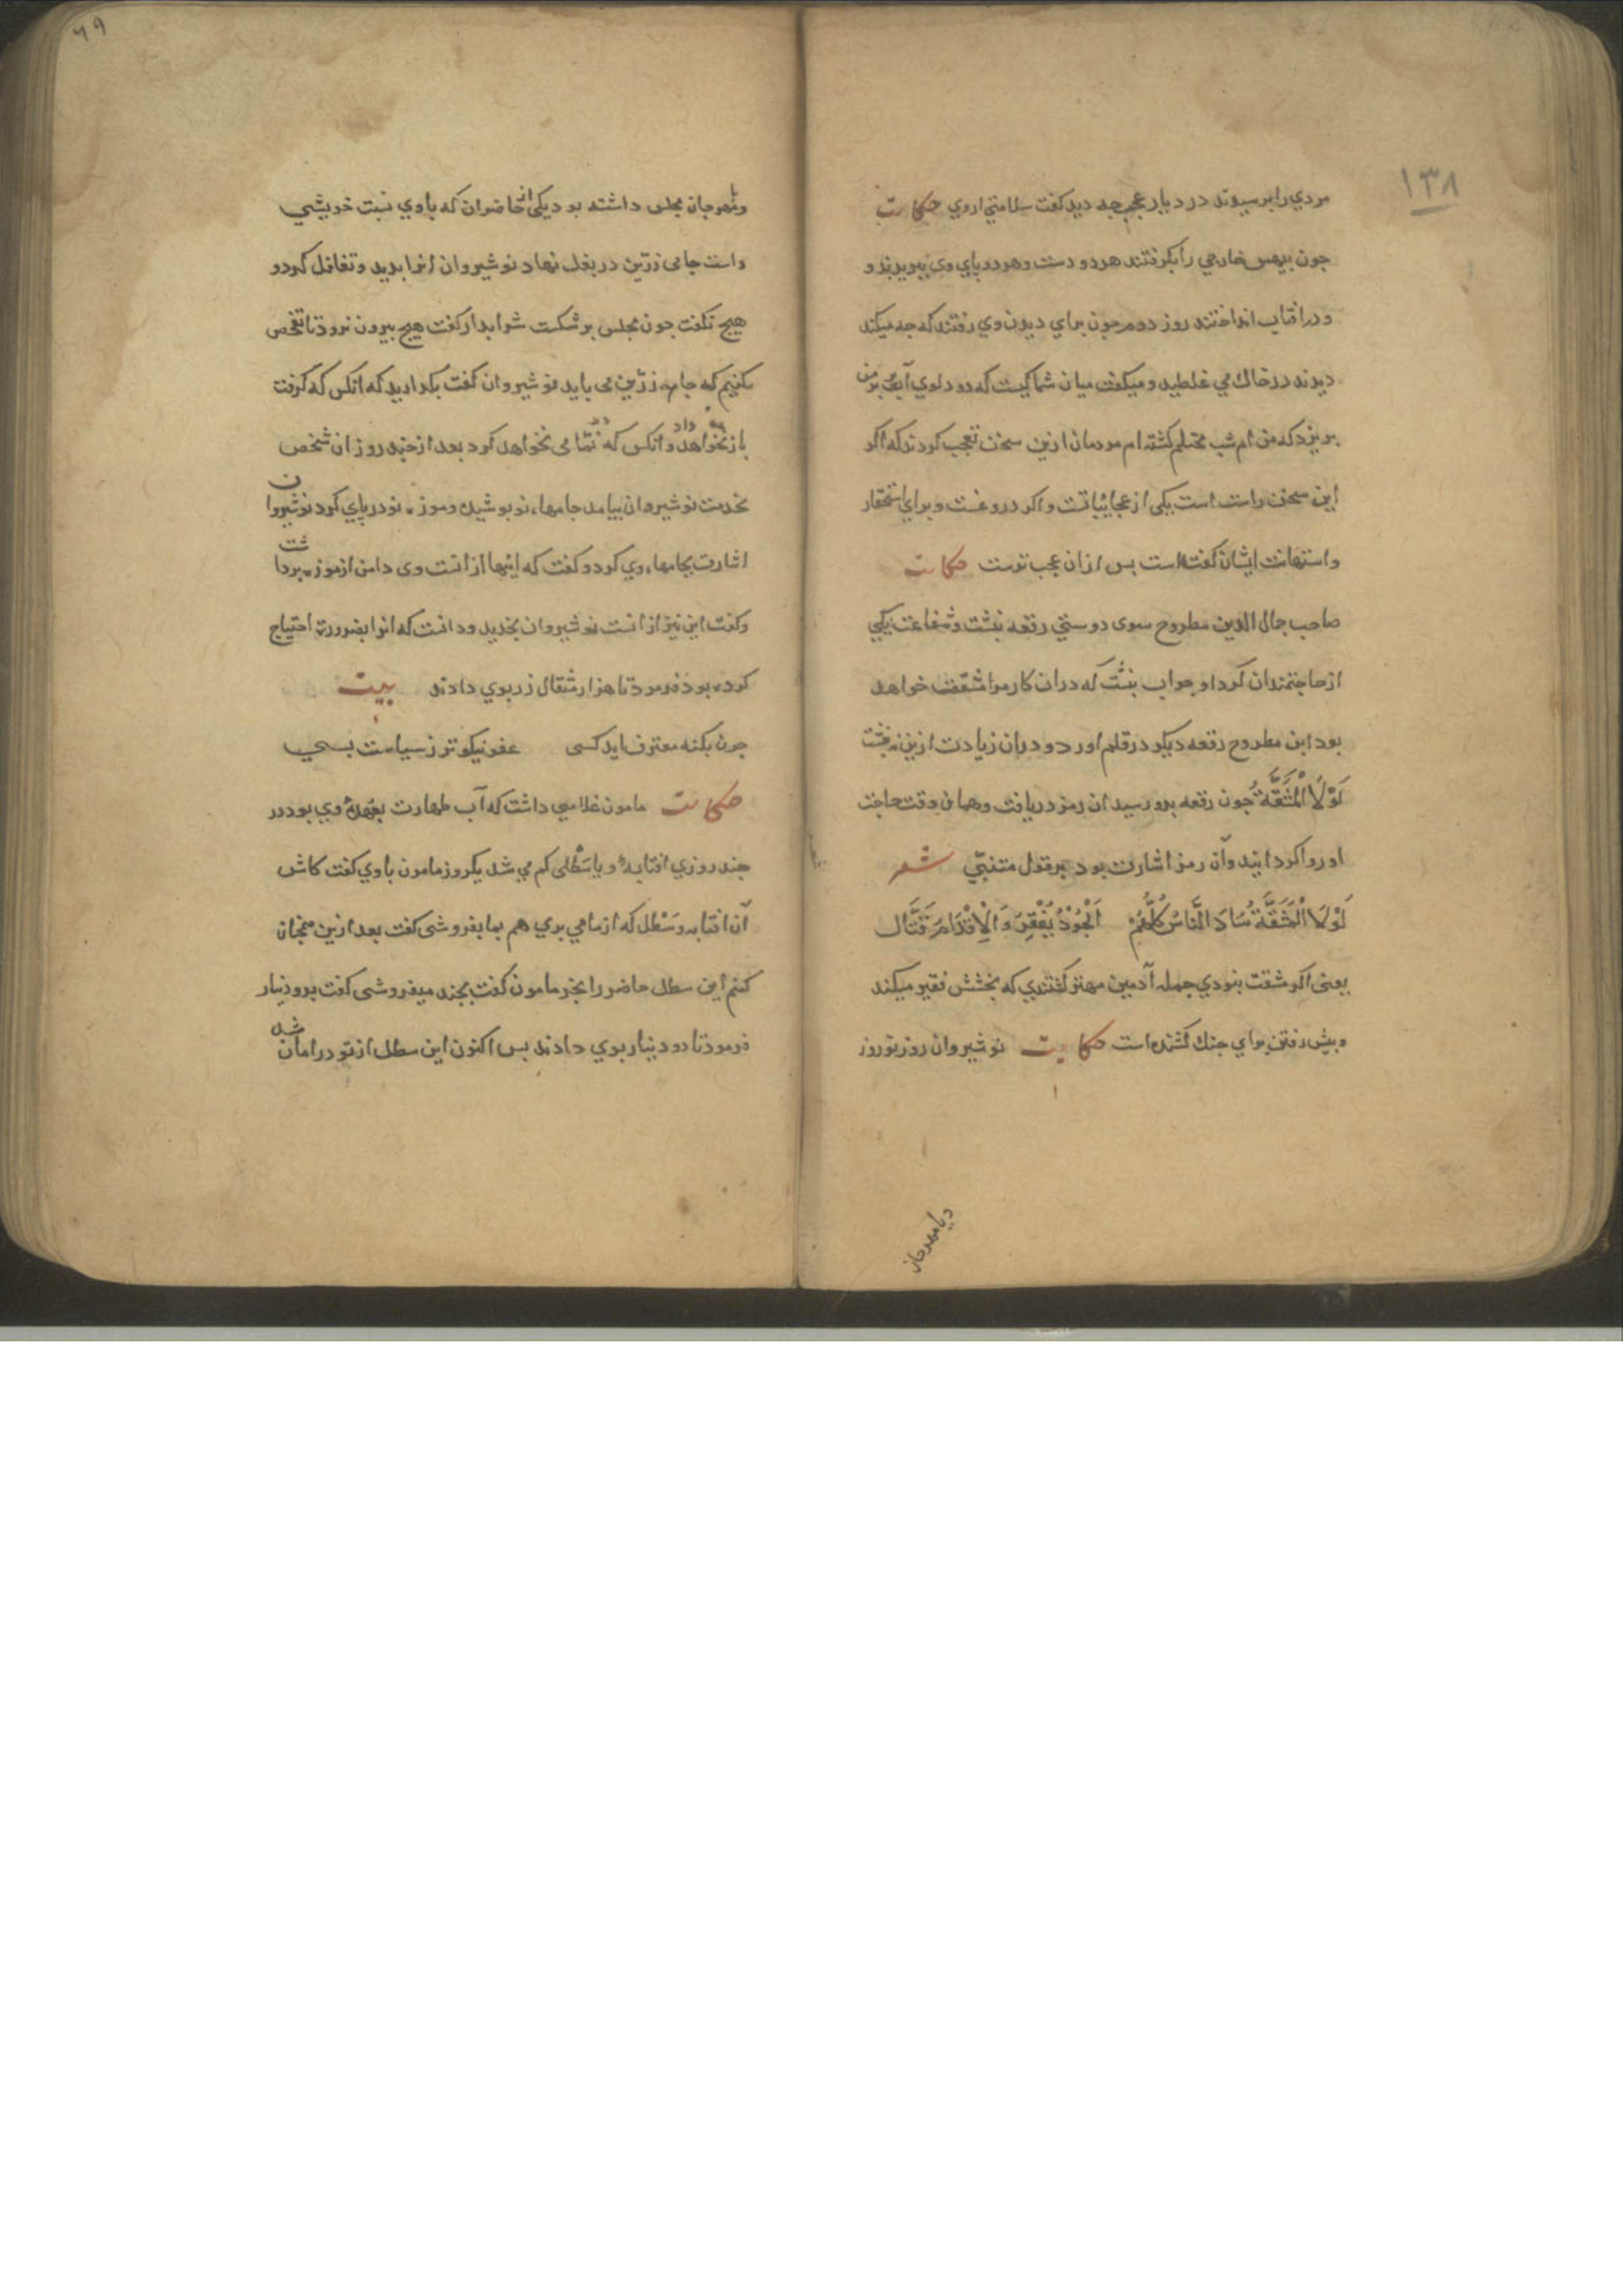 ١٣٨
مردي را پرسيدند در ديار عجم جه ديد كفت سلامتي ازوي حكايت
جون بيهس خارجي را بكرفتند هر دو دست و هر دو پاي وي ببريدند و
و در افتاب انداختند روز دوم جون براي ديدن وي رفتند كه جه ميكند
ديدند در خاك مي غلطيد و ميكفت ميان شما كيست كه دو دلوي آب بر من
بريزد كه من ام شب محتلم كشته ام مردمان ازين سخن تعجب كردند كه اكر
اين سخن راست است يكي از عجائباتست و اكر دروغست و براي استحقار
و استهانت ايشان كفت است بس از ان عجب ترست حكايت
صاحب جمال الدين مطروح سوى دوستي رقعه بنشت و شفاعت يكي
از حاجتمندان كرد او جواب بنشت كه در ان كار مرا مشقت خواهد
بود ابن مطروح رقعه ديكر در قلم اورد و در ان زيادت ازين نرفت
لَوْلَا الْمَشَقَّةُ جون رقعه بدو رسيد ان رمز دريافت و همان وقت حاجت
او روا كردانيد و آن رمز اشارت بود بر قول متنبّي شعر
لَوْلَا الْمَشَقَّةُ سَادَ النَّاسُ كُلُّهُمْ اَلْجُوْدُ يُفْقِرُ وَالْاِقْدَامُ قَتَّال
يعنى اكر مشقت بنودي جمله آدمين مهتر كشتندي كه بخشش فقير ميكند
و پيش رفتن براي جنك كشنده است حكايت نوشيروان روز نوروز
ديا مهرجان
٦٩
و يا مهرجان مجلس داشته بود يكى از حاضران كه با وي نسبت خويشي
داست جامى زرّين در بغل نهاد نوشيروان انرا بديد و تغافل كرد و
هيج نكفت جون مجلس برشكست شرابدار كفت هيج بيرون نرود تا تفحص
بكنيم كه جام زرّين مى بايد نوشيروان كفت بكذاريد كه انكس كه كرفت
باز نخواهد داد و انكس كه ديد نمّامى نخواهد كرد بعد از جند روز ان شخص
بخدمت نوشيروان بيامد جامهاء نو بوشيده و موزه نو در پاي كرد نوشيروان
اشارت بجامهاء وي كرد و كفت كه اينها از انست وى دامن از موزه برداشت
و كفت اين نيز از انست نوشيروان بخنديد و دانست كه انرا بضرورت احتياج
كرده بود فرمود تا هزار مثقال زر بوي دادند بيت
جون بكنه معترف ايد كسى عفو نيكوتر ز سياست بسي
حكايت مامون غلامي داشت كه آب طهارت بعهدهٔ وي بود در
جند روزي افتابهٔ و يا سَطْلى كم مي شد يكروز مامون با وي كفت كاش
آن افتابه و سَطْل كه از ما مي بري هم بما بفروشى كفت بعد ازين همچنان
كنم اين سطل حاضر را بخر مامون كفت بجند ميفروشى كفت بدو دينار
فرمود تا دو دينار بوي دادند بس اكنون اين سطل از تو در امان شد